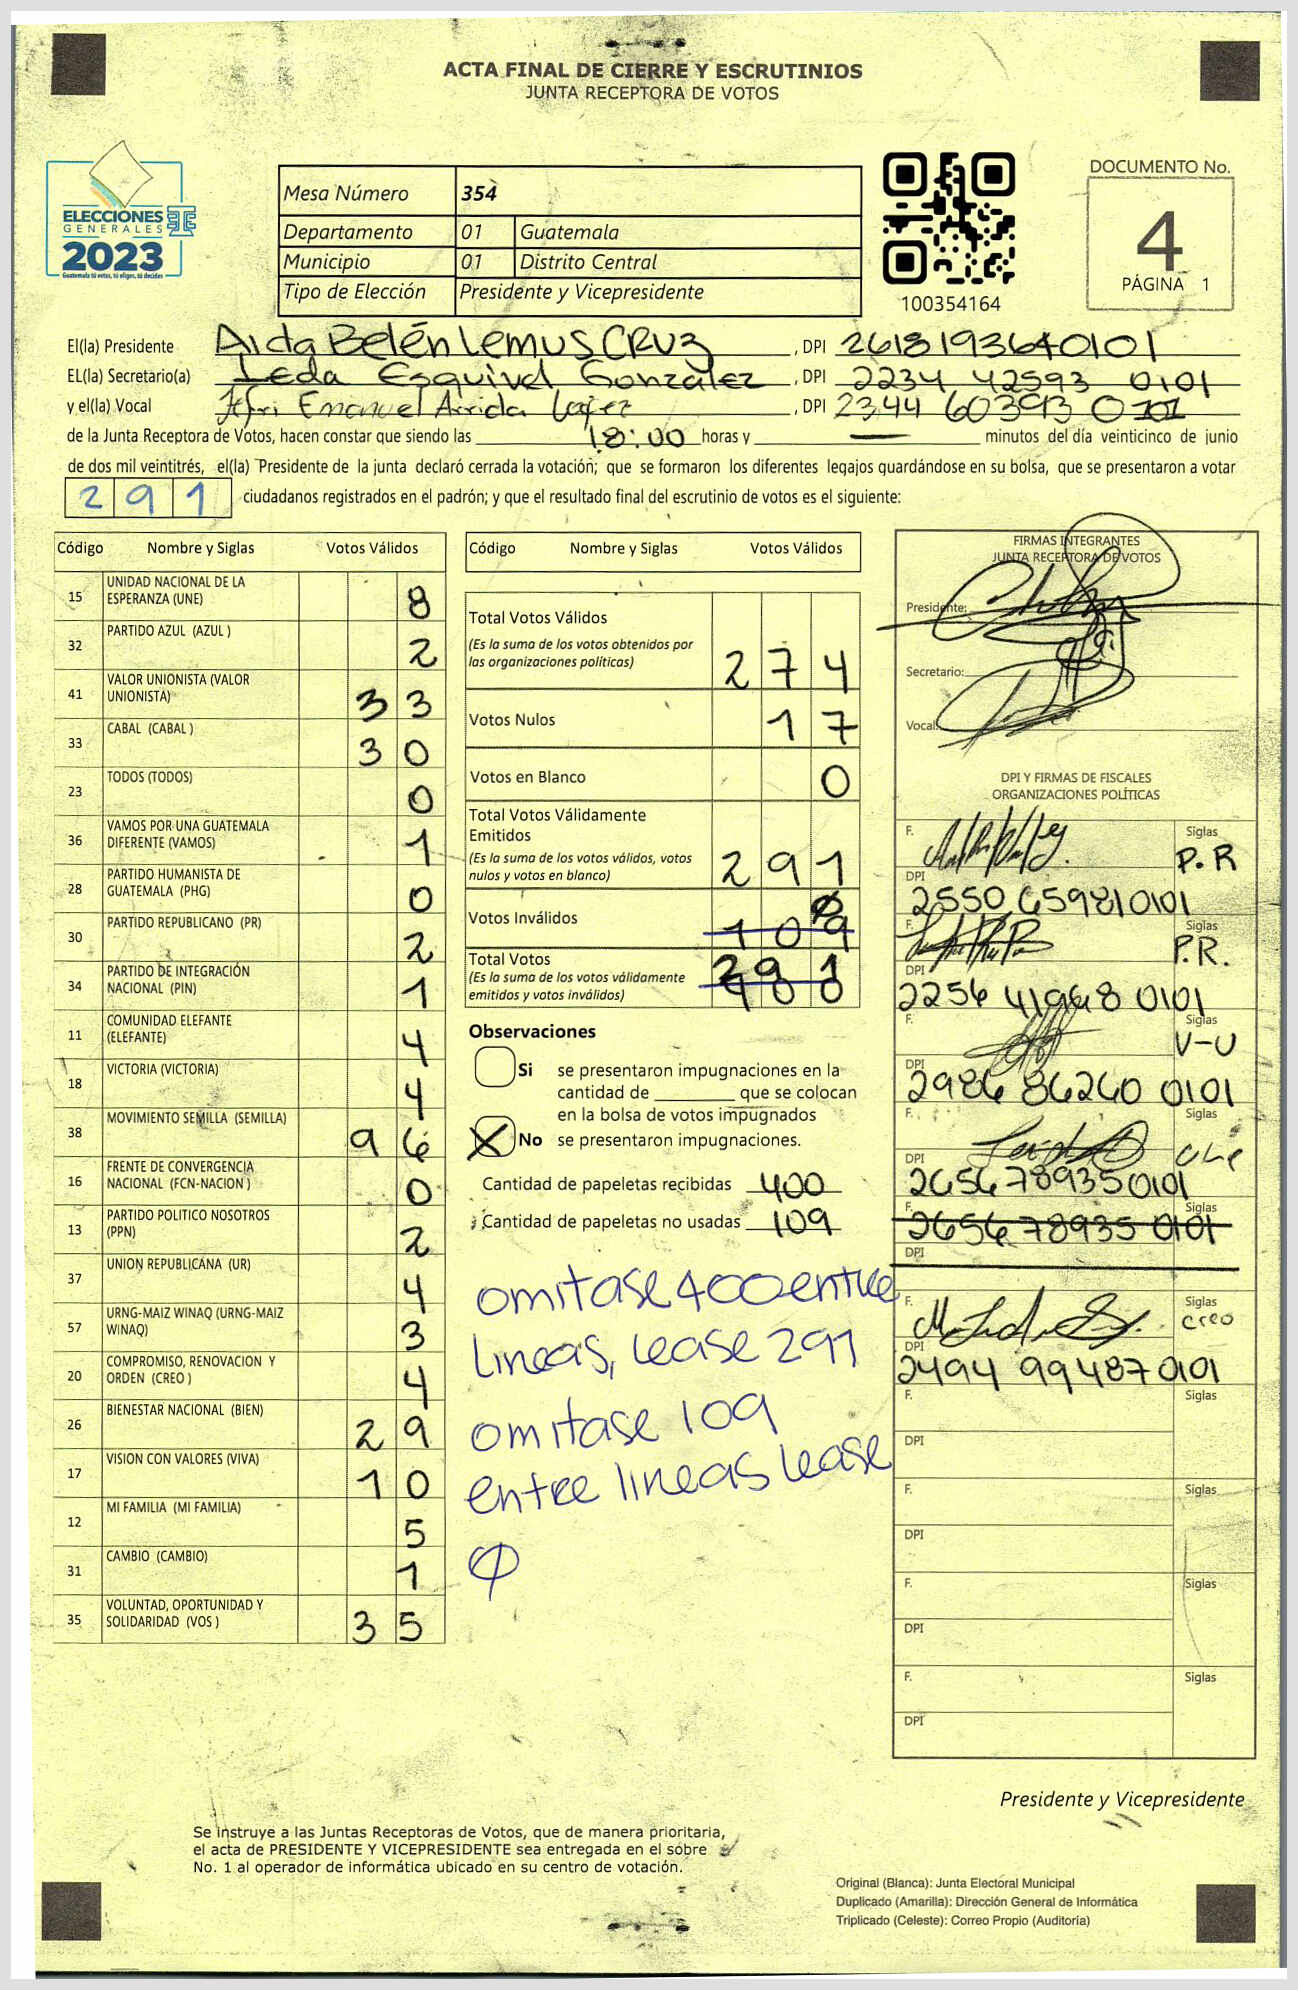 ACTA FINAL DE CIERRE Y ESCRUTINIOS
JUNTA RECEPTORA DE VOTOS
ELECCIONES
GENERALES
2023
Guatemala tú votas, tú eliges, tú decides
Mesa Número 354
Departamento 01 Guatemala
Municipio 01 Distrito Central
Tipo de Elección Presidente y Vicepresidente
100354164
DOCUMENTO No.
4
PÁGINA 1
El(la) Presidente Aida Belén Lemus CRUZ , DPI 2618193640101
EL(la) Secretario(a) Leda Esquivel González , DPI 2234 42593 0101
y el(la) Vocal Emanuel Arrida López , DPI 2344 60393 0101
de la Junta Receptora de Votos, hacen constar que siendo las 18:00 horas y — minutos del día veinticinco de junio
de dos mil veintitrés, el(la) Presidente de la junta declaró cerrada la votación; que se formaron los diferentes legajos guardándose en su bolsa, que se presentaron a votar
291 ciudadanos registrados en el padrón; y que el resultado final del escrutinio de votos es el siguiente:
Código Nombre y Siglas Votos Válidos
15 UNIDAD NACIONAL DE LA ESPERANZA (UNE) 8
32 PARTIDO AZUL (AZUL ) 2
41 VALOR UNIONISTA (VALOR UNIONISTA) 33
33 CABAL (CABAL ) 30
23 TODOS (TODOS) 0
36 VAMOS POR UNA GUATEMALA DIFERENTE (VAMOS) 1
28 PARTIDO HUMANISTA DE GUATEMALA (PHG) 0
30 PARTIDO REPUBLICANO (PR) 2
34 PARTIDO DE INTEGRACIÓN NACIONAL (PIN) 1
11 COMUNIDAD ELEFANTE (ELEFANTE) 4
18 VICTORIA (VICTORIA) 4
38 MOVIMIENTO SEMILLA (SEMILLA) 96
16 FRENTE DE CONVERGENCIA NACIONAL (FCN-NACION ) 0
13 PARTIDO POLITICO NOSOTROS (PPN) 2
37 UNION REPUBLICANA (UR) 4
57 URNG-MAIZ WINAQ (URNG-MAIZ WINAQ) 3
20 COMPROMISO, RENOVACION Y ORDEN (CREO ) 4
26 BIENESTAR NACIONAL (BIEN) 29
17 VISION CON VALORES (VIVA) 10
12 MI FAMILIA (MI FAMILIA) 5
31 CAMBIO (CAMBIO) 1
35 VOLUNTAD, OPORTUNIDAD Y SOLIDARIDAD (VOS ) 35
Código Nombre y Siglas Votos Válidos
Total Votos Válidos
(Es la suma de los votos obtenidos por
las organizaciones políticas) 274
Votos Nulos 17
Votos en Blanco 0
Total Votos Válidamente
Emitidos
(Es la suma de los votos válidos, votos
nulos y votos en blanco) 291
Votos Inválidos 109 0
Total Votos 291
(Es la suma de los votos válidamente
emitidos y votos inválidos) 400
Observaciones
Si se presentaron impugnaciones en la
cantidad de ________ que se colocan
en la bolsa de votos impugnados
X No se presentaron impugnaciones.
Cantidad de papeletas recibidas 400
Cantidad de papeletas no usadas 109
omitase 400 entre
lineas, lease 291
omitase 109
entre lineas lease
Ø
FIRMAS INTEGRANTES
JUNTA RECEPTORA DE VOTOS
Presidente:
Secretario:
Vocal:
DPI Y FIRMAS DE FISCALES
ORGANIZACIONES POLÍTICAS
F. Siglas P.R
DPI 2550 659810101
F. Siglas P.R.
DPI 2256 41968 0101
F. Siglas V-U
DPI 2986 86260 0101
F. Siglas une
DPI 2656789350101
F. 2656 78935 0101 Siglas
DPI
F. Siglas creo
DPI 2494 994870101
F. Siglas
DPI
F. Siglas
DPI
F. Siglas
DPI
F. Siglas
DPI
Presidente y Vicepresidente
Se instruye a las Juntas Receptoras de Votos, que de manera prioritaria,
el acta de PRESIDENTE Y VICEPRESIDENTE sea entregada en el sobre
No. 1 al operador de informática ubicado en su centro de votación.
Original (Blanca): Junta Electoral Municipal
Duplicado (Amarilla): Dirección General de Informática
Triplicado (Celeste): Correo Propio (Auditoría)